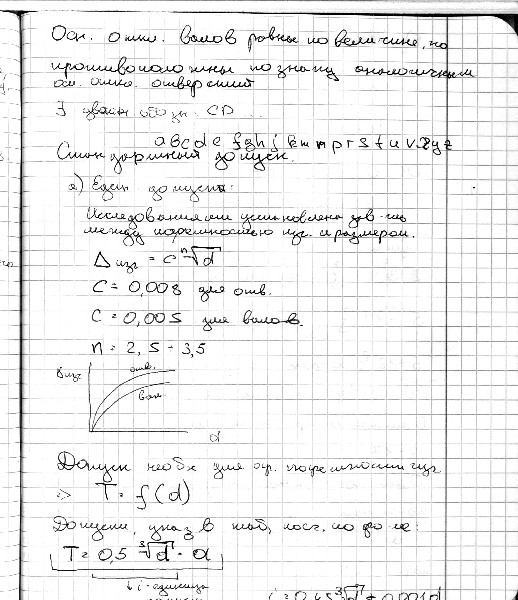 Осн. откл. валов равны по величине, но
противоположны по знаку аналогичным
осн. откл. отверстий
CD
a b c d e f g h j k m n p r s t u v x y z
Стандартный допуск.
а) Един допуска:
Исследованиями установлена зав-ть
между погрешностью изг. и размером.
Δ изг = c ⁿ√d
C = 0,008 для отв.
C = 0,005 для валов.
n = 2,5 ÷ 3,5
отв.
вал
d
Допуск необх для огр. погрешности изг
=> T = f(d)
Допуски, указ в таб,
T = 0,5 ³√d · a
i - единица
i = 0,45 ³√d + 0,001d